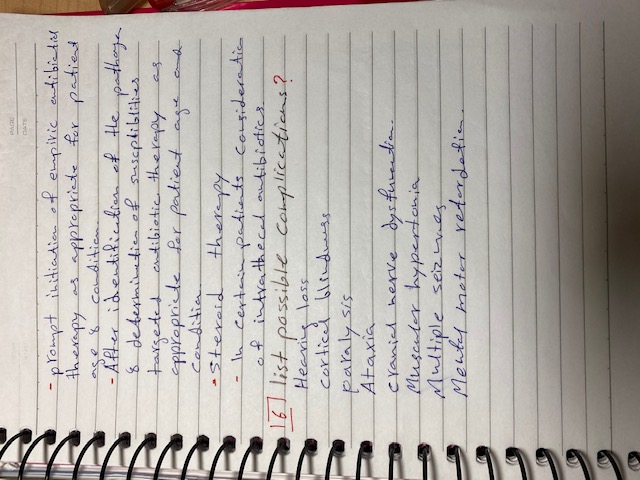 PAGE
DATE
- prompt initiation of empiric antibiotics
therapy as appropriate for patient
age & condition
- After identification of the pathoge
& determination of susceptibilities
targeted antibiotic therapy as
appropriate for patient age and
condition
- Steroid therapy
- In certain patients consideratio
of intrathecal antibiotics
16 list possible complications?
Hearing loss
cortical blindness
paralysis
Ataxia
cranial nerve dysfunction.
Muscular hypertonia
Multiple seizures
Mental motor retardation.